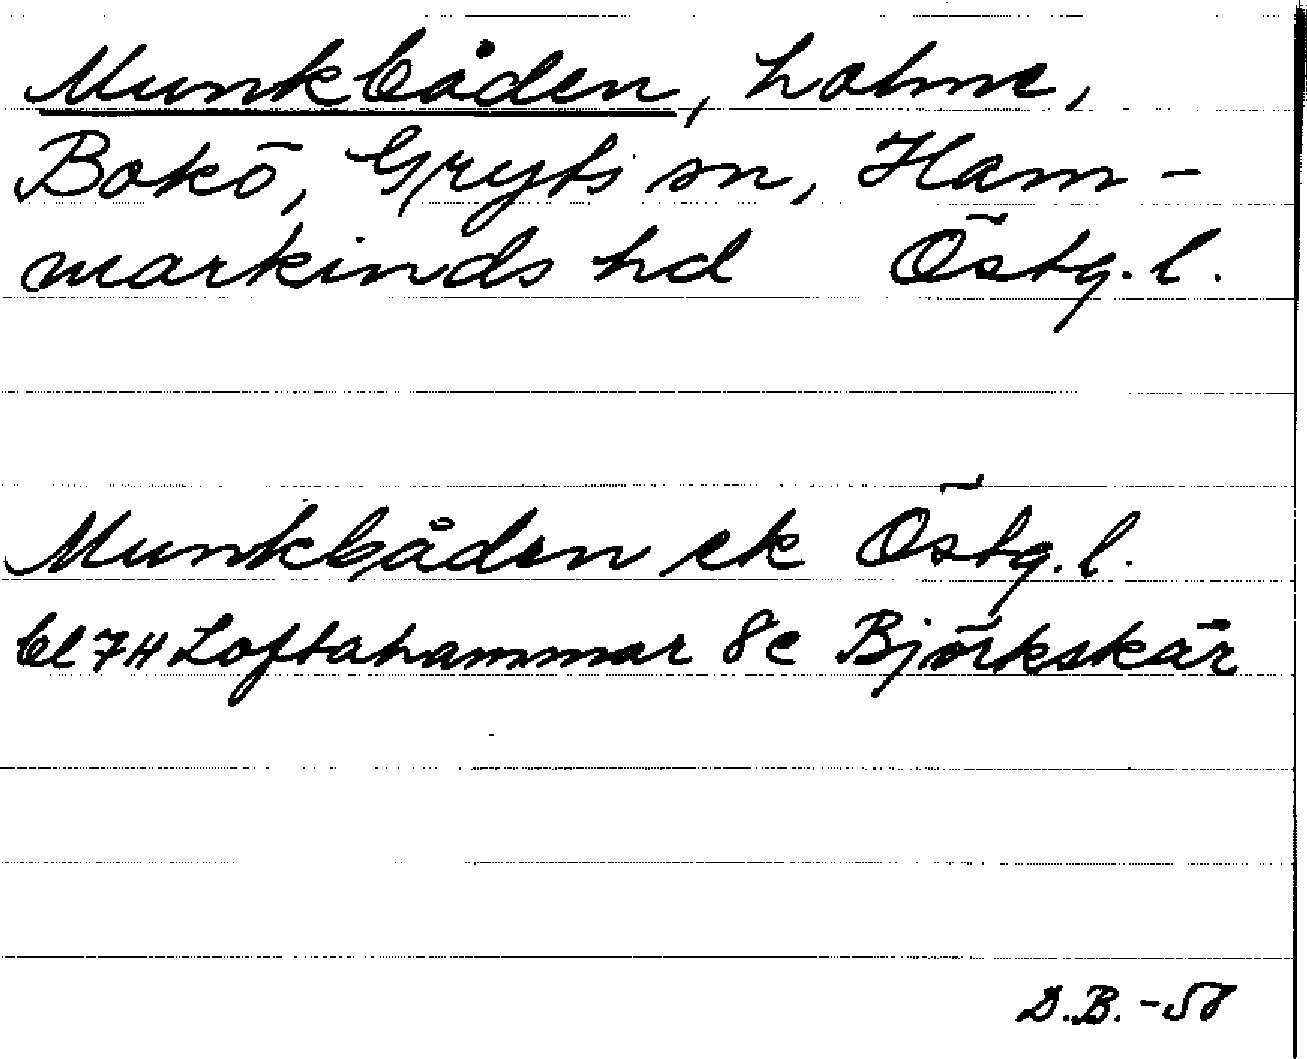 Munkbåden, holme,
Bokö, Gryts sn, Ham-
markinds hd Östg. l.
Munkbåden ek Östg. l.
bl 74 Loftahammar 8c Björkskär
D.B. -58